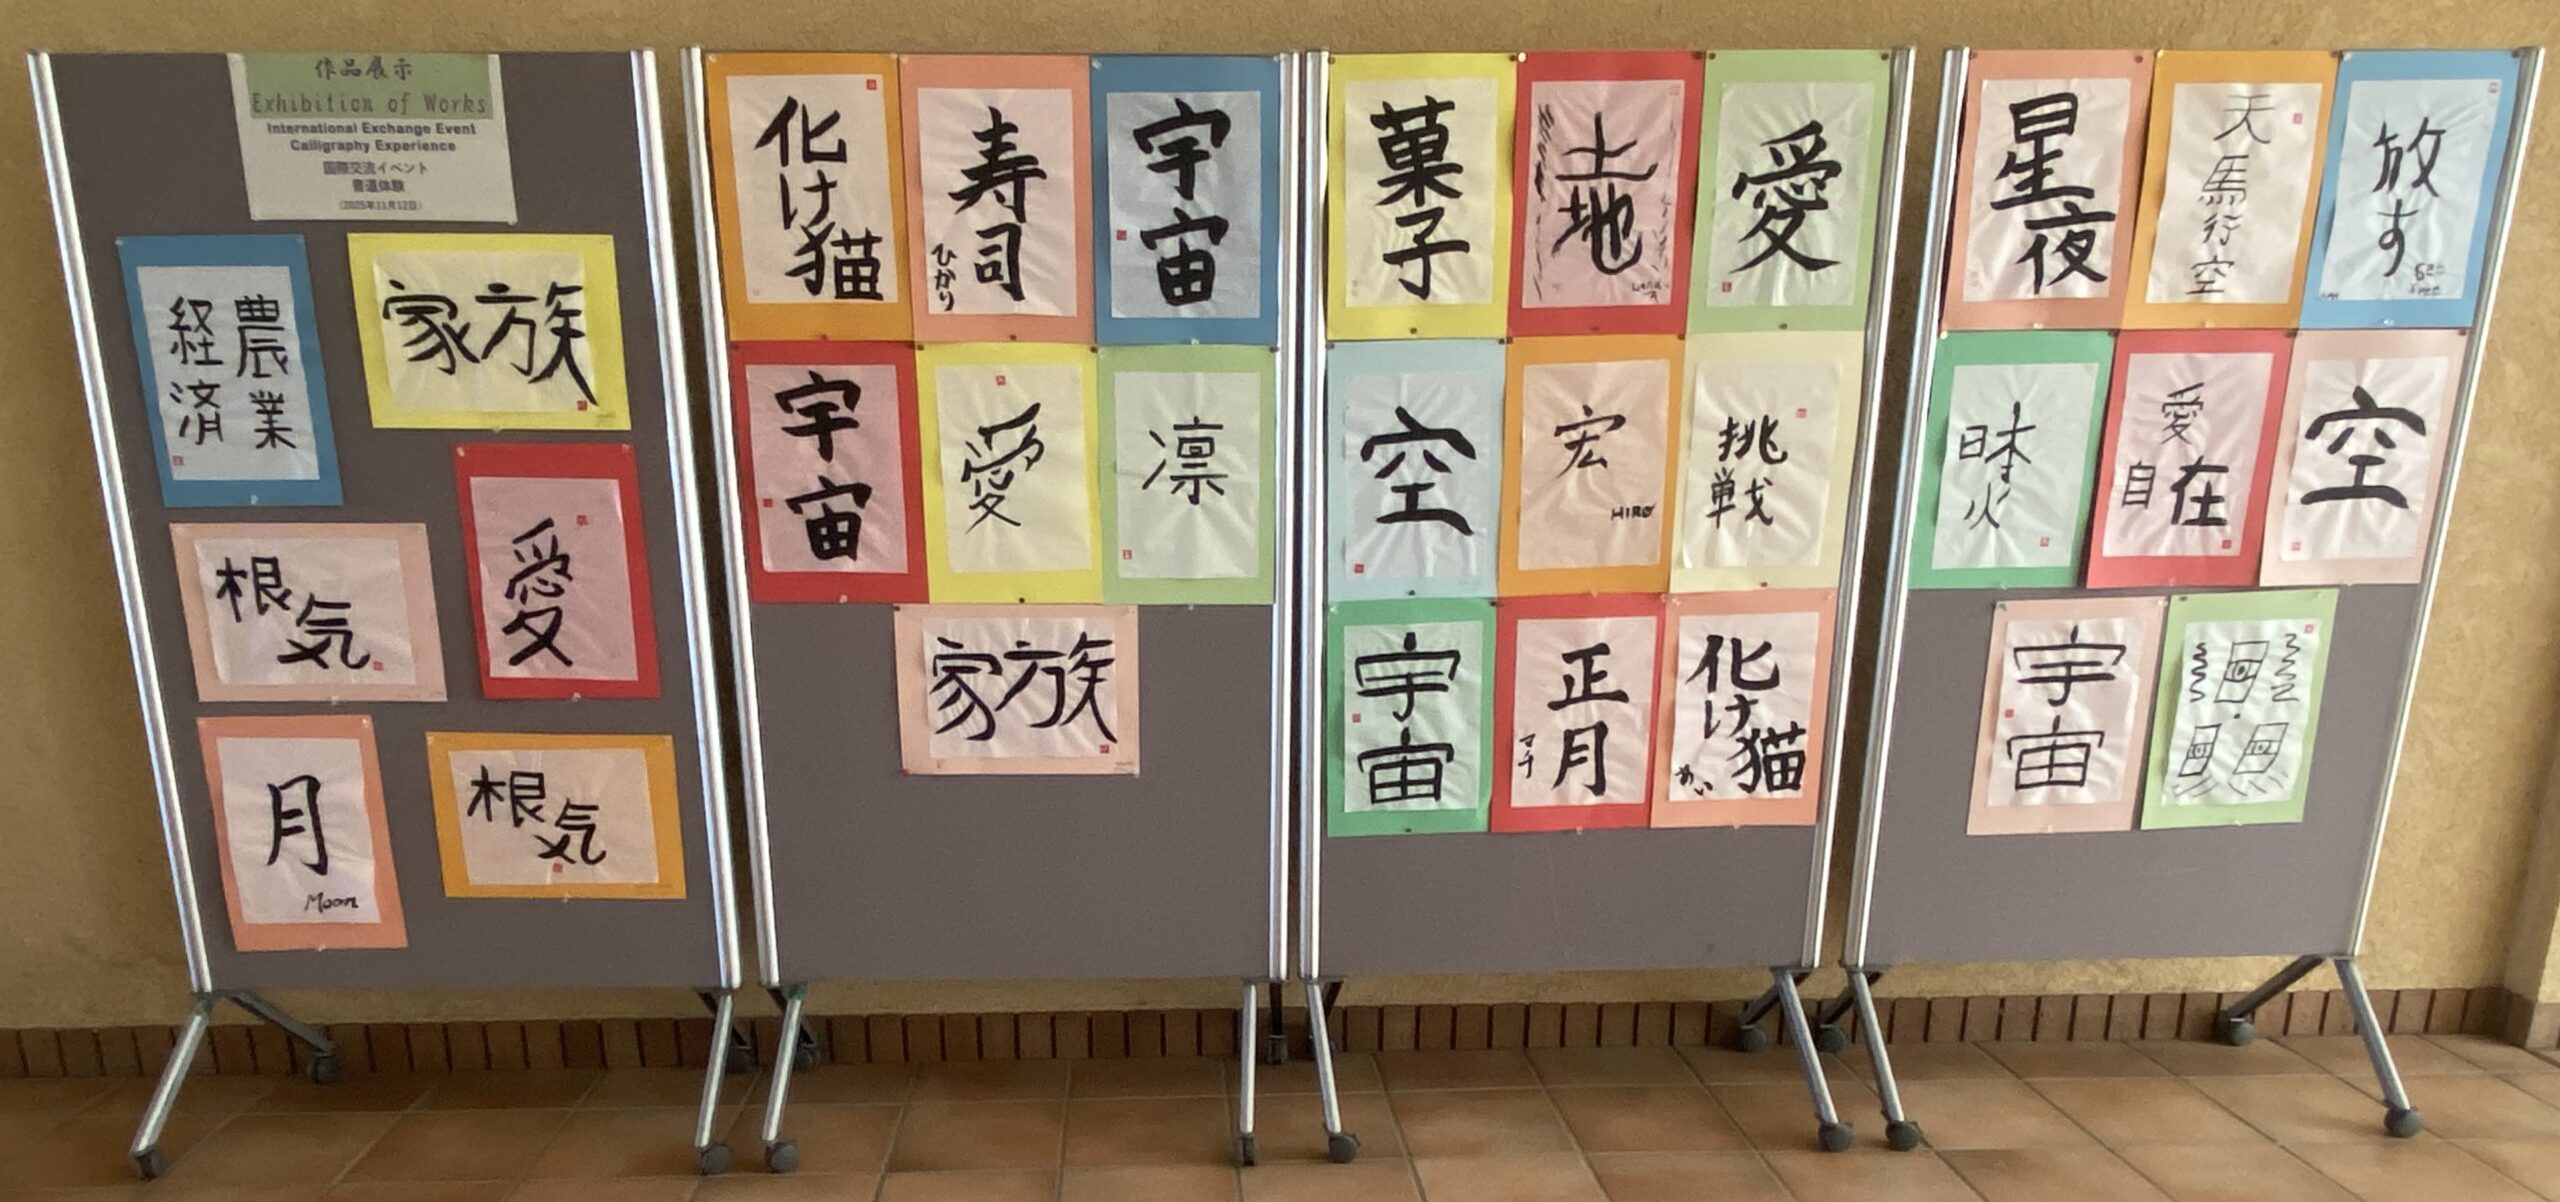 作品展示
Exhibition of Works
International Exchange Event
Calligraphy Experience
国際交流イベント
書道体験
(2025年11月12日)
農業
経済
家族
根気
愛
月
Moon
根気
化け猫
寿司
ひかり
宇宙
宇宙
愛
凛
家族
菓子
土地
愛
空
宏
HIRO
挑戦
宇宙
正月
化け猫
めい
星夜
天馬行空
放す
愛
自在
空
宇宙